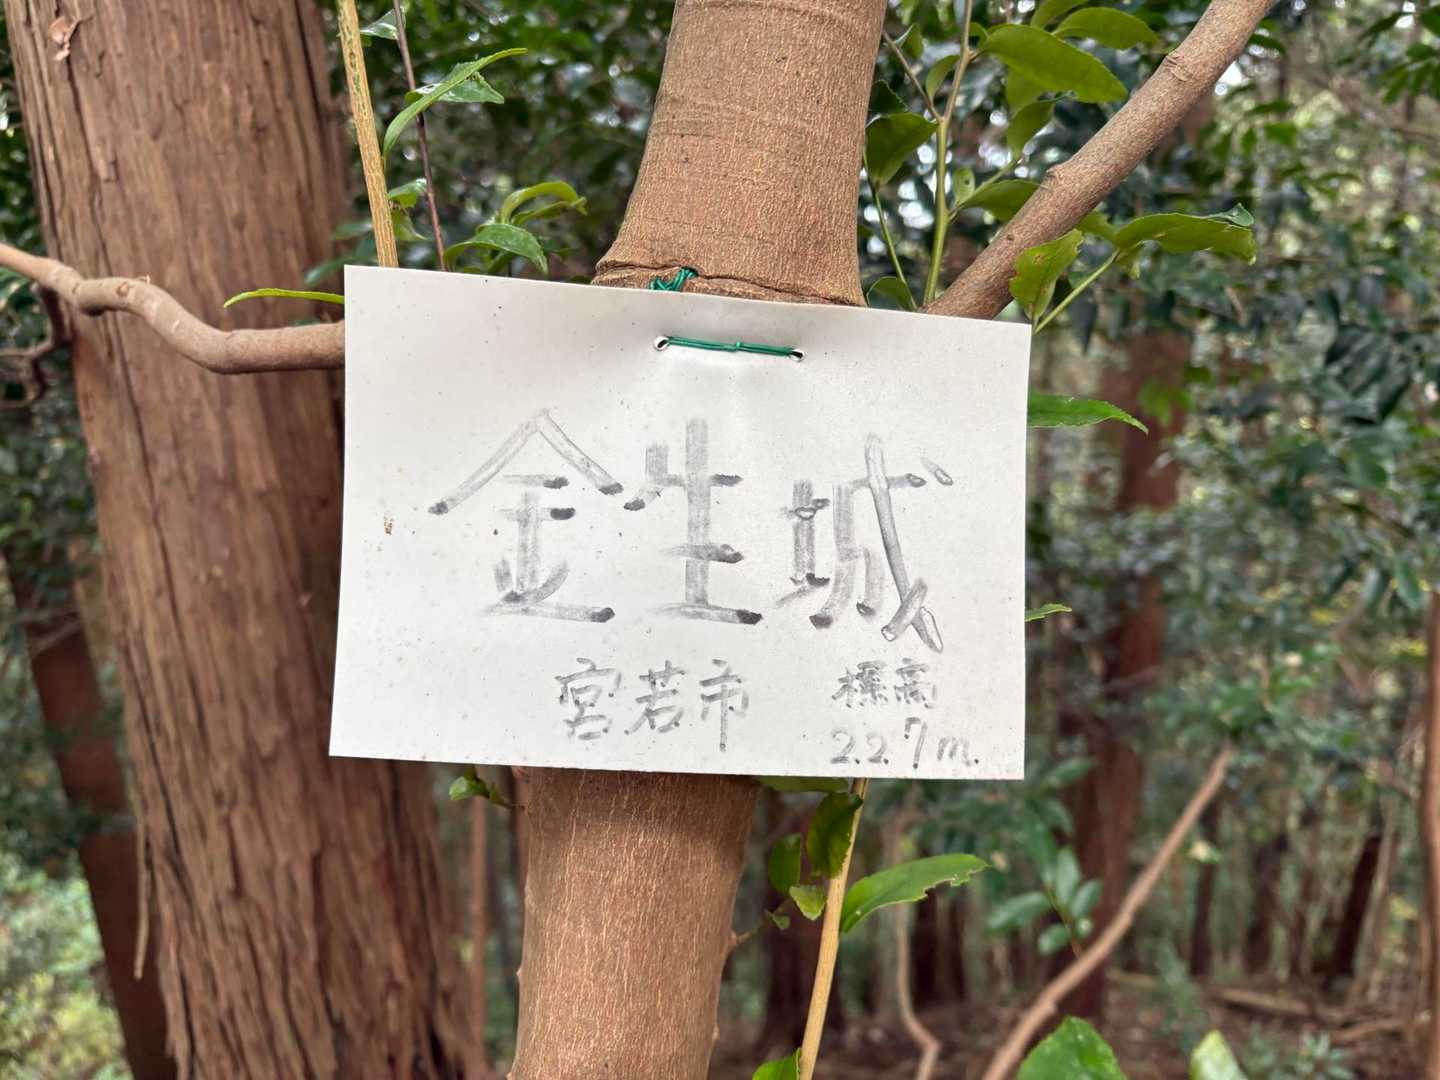 金生城
宮若市 標高
227m.